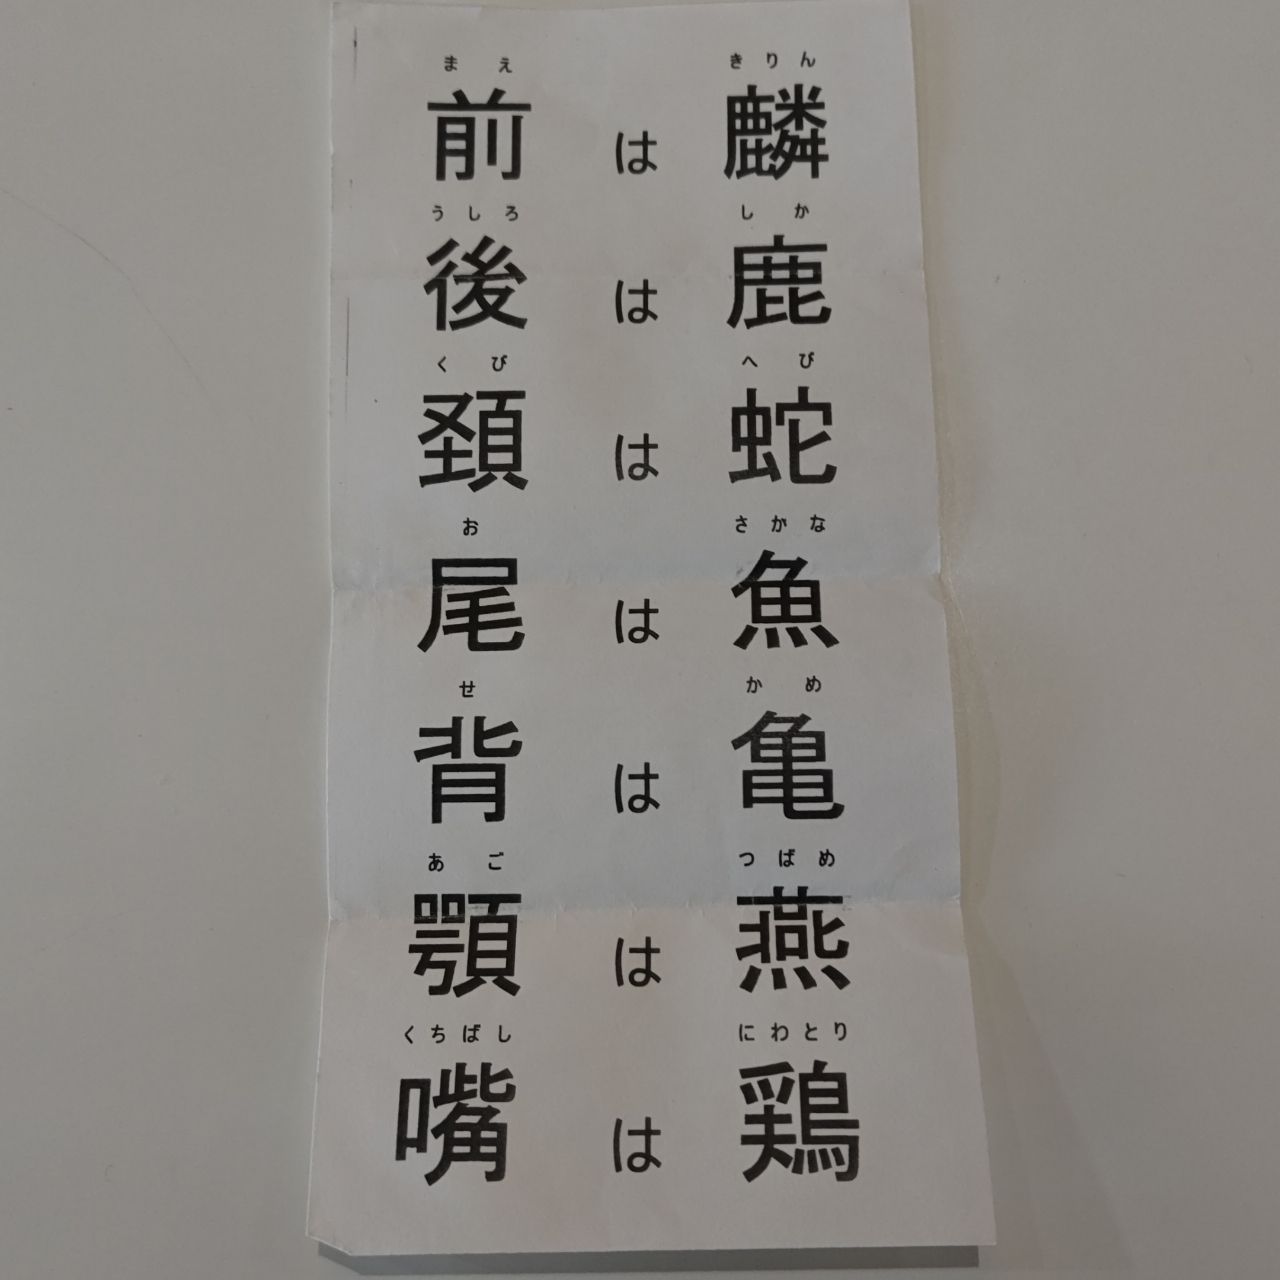 まえ きりん
前 は 麟
うしろ しか
後 は 鹿
くび へび
頚 は 蛇
お さかな
尾 は 魚
せ かめ
背 は 亀
あご つばめ
顎 は 燕
くちばし にわとり
嘴 は 鶏